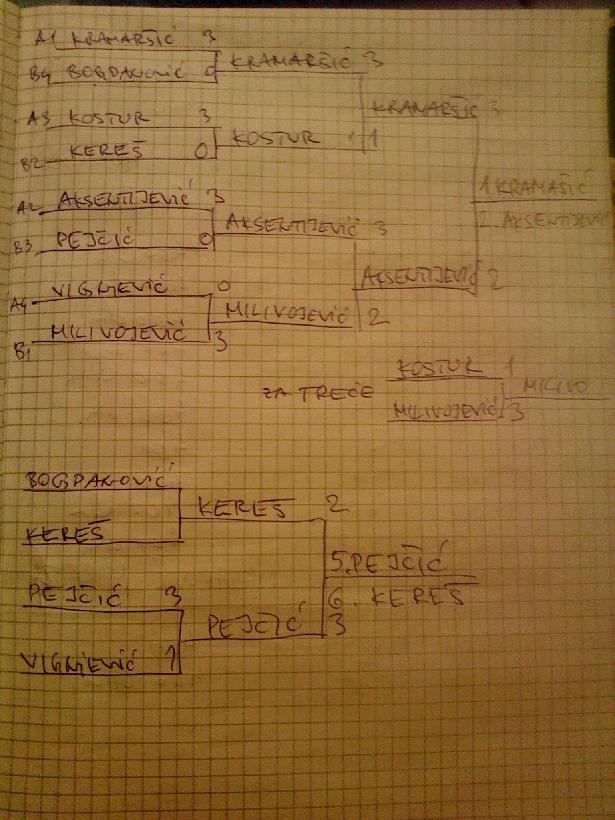 A1 KRAMARŠIĆ 3
B4 BOGDANOVIĆ 0
KRAMARŠIĆ 3
A3 KOSTUR 3
B2 KEREŠ 0
KOSTUR 1
KRAMARŠIĆ 3
A2 AKSENTIJEVIĆ 3
B3 PEJČIĆ 0
AKSENTIJEVIĆ 3
A4 VIGNJEVIĆ 0
B1 MILIVOJEVIĆ 3
MILIVOJEVIĆ 2
AKSENTIJEVIĆ 2
1 KRAMAŠIĆ
2. AKSENTIJEVIĆ
ZA TREĆE
KOSTUR 1
MILIVOJEVIĆ 3
MILIVO
BOGDANOVIĆ
KEREŠ
KEREŠ 2
PEJČIĆ 3
VIGNJEVIĆ 1
PEJČIĆ 3
5. PEJČIĆ
6. KEREŠ